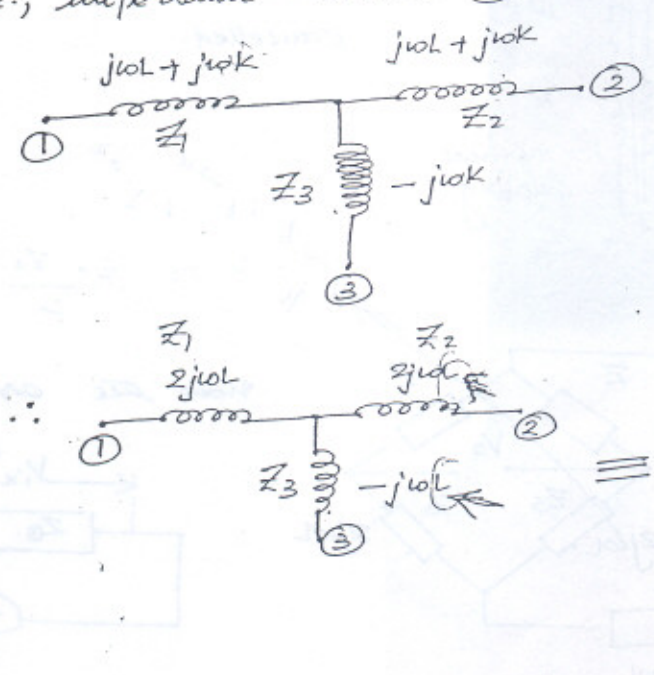 jωL + jωK
jωL + jωK
①
Z1
Z2
②
Z3
-jωK
③
Z1
Z2
2jωL
2jωL
∴
①
②
≡
Z3
-jωL
③